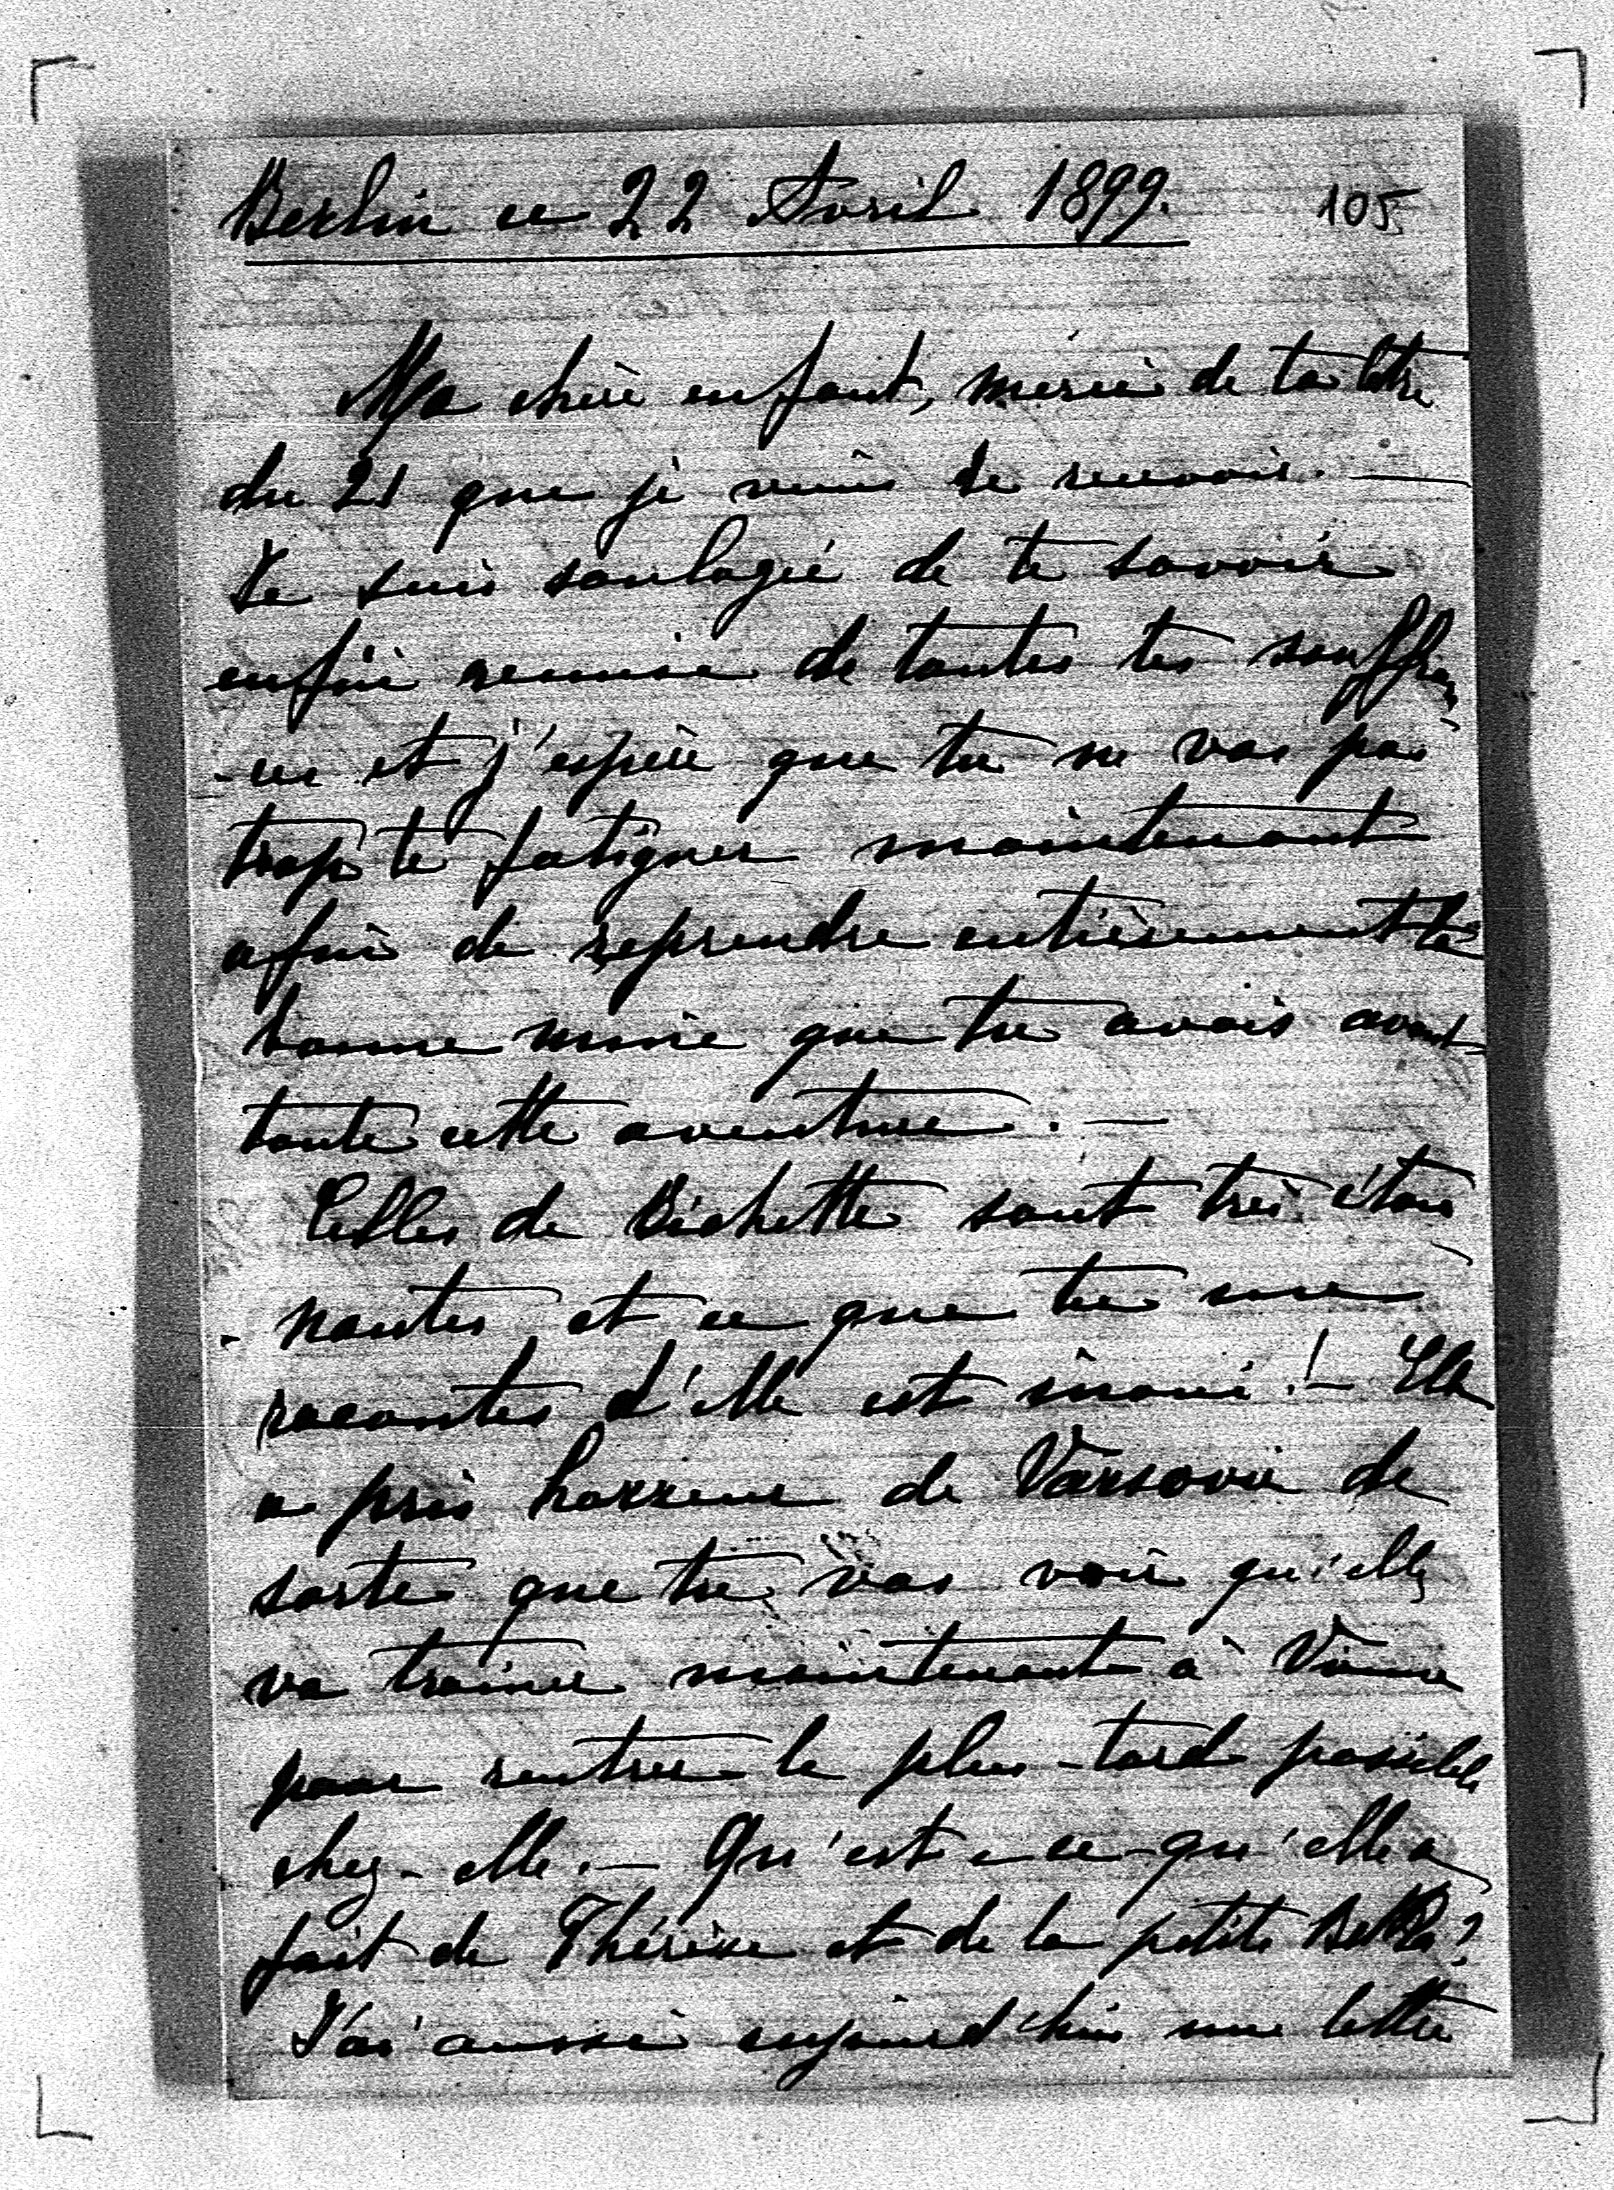 Berlin ce 22 Avril 1899.
105
Ma chère enfant, merci de ta lettre
du 21 que je viens de recevoir. —
Je suis soulagé de te savoir
enfin remise de toutes tes souffran
-ces et j'espère que tu ne vas pas
trop te fatiguer maintenant
afin de reprendre entièrement ta
bonne mine que tu avais avant
toute cette aventure. —
Celles de Bichette sont très éton
- nantes et ce que tu me
racontes d'elle est inouï! — Elle
a pris horreur de Varsovie de
sorte que tu vas voir qu'elle
va trainer maintenant à Vienne
pour rentrer le plus-tard possible
chez-elle. — Qu'est-ce-qu'elle a
fait de Thérèse et de la petite ?
J'ai aussi aujourd'hui une lettre